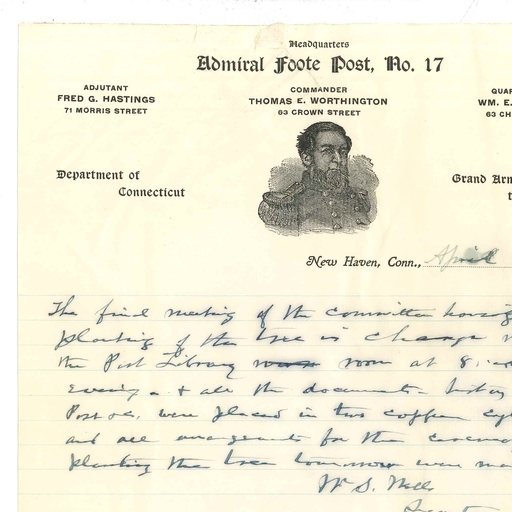 Headquarters
Admiral Foote Post, No. 17
ADJUTANT
FRED G. HASTINGS
71 MORRIS STREET
COMMANDER
THOMAS E. WORTHINGTON
63 CROWN STREET
QUAR
WM. E.
63 CH
Department of
Connecticut
Grand Arm
t
New Haven, Conn., April
The final meeting of the committee having
planting of the tree in charge
the Post Library room at 8:
Evening & all the documents - history
Post &c. were placed in two copper cyl
and all arrangements for the ceremo
planting the tree tomorrow were ma
W S. Wells